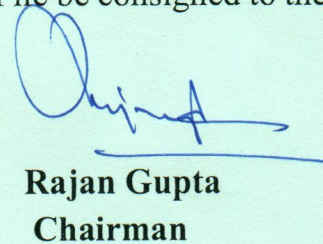 be consigned to the
Rajan Gupta
Chairman